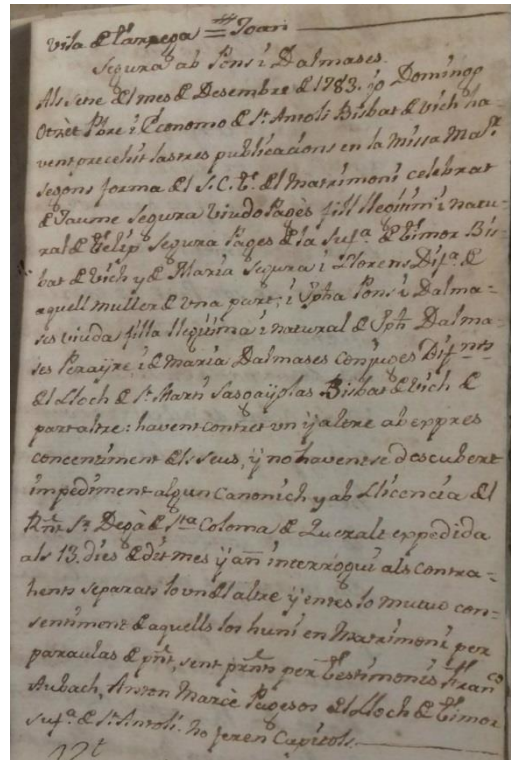 Vila de Tarrega = Joan
Segura ab Pons i Dalmases.
Als setze del mes de Desembre de 1783. yo Domingo
Pbre i Economo de St. Antoli Bisbat de Vich ha-
vent precehit las tres publicacions en la Missa Maj.r
segons forma del S. C. T. del Matrimoni celebrat
de Jaume Segura viudo Pagès fill llegitim i natu-
ral de Felip Segura Pages de la Suf.a de Timor Bis-
bat de Vich y de Maria Segura i Llorens Dif.a de
aquell muller de una part; i Jpha Pons i Dalma=
ses viuda filla llegitima i natural de Jph Dalma=
ses Perayre, i de Maria Dalmases conjuges Dif.nts
del Lloch de St. Martí Sasgayolas Bisbat de Vich de
part altre: havent contret un y altre ab expres
concentiment dels seus, y no havent se descubert
impediment algun Canonich y ab Llicencia del
Rnt. Sr. Degà de Sta Coloma de Queralt expedida
als 13. dies de dit mes y añ interroguí als contra=
hents separats lo un del altre y entes lo mutuo con=
sentiment de aquells los huní en Matrimoni per
paraulas de pnt, sent prnts per Testimonis Fran.co
Aubach, Anton Marcè Pagesos del Lloch de Timor
Suf.a de St. Antoli. No feren Capitols.